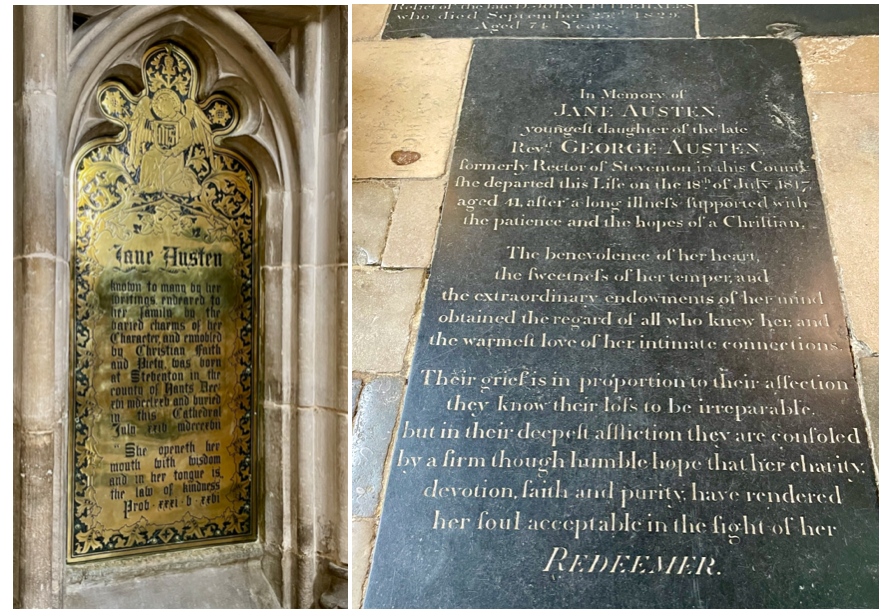 IHS
Jane Austen
known to many by her
writings, endeared to
her family by the
varied charms of her
Character, and ennobled
by Christian Faith
and Piety, was born
at Steventon in the
county of Hants Dec
xvi mdcclxxv and buried
in this Cathedral
July xxiv mdcccxvii
"She openeth her
mouth with wisdom
and in her tongue is
the law of kindness
Prov xxxi · v · xxvi
Relict of the late Dr. JOHN LITTLEHALES
who died September 1829,
Aged 74 Years.
In Memory of
JANE AUSTEN,
youngeſt daughter of the late
Revd. GEORGE AUSTEN,
formerly Rector of Steventon in this County
ſhe departed this Life on the 18th of July 1817,
aged 41, after a long illneſs ſupported with
the patience and the hopes of a Chriſtian,
The benevolence of her heart,
the ſweetneſs of her temper, and
the extraordinary endowments of her mind
obtained the regard of all who knew her, and
the warmeſt love of her intimate connections.
Their grief is in proportion to their affection
they know their loſs to be irreparable,
but in their deepeſt affliction they are conſoled
by a firm though humble hope that her charity,
devotion, faith and purity, have rendered
her ſoul acceptable in the ſight of her
REDEEMER.